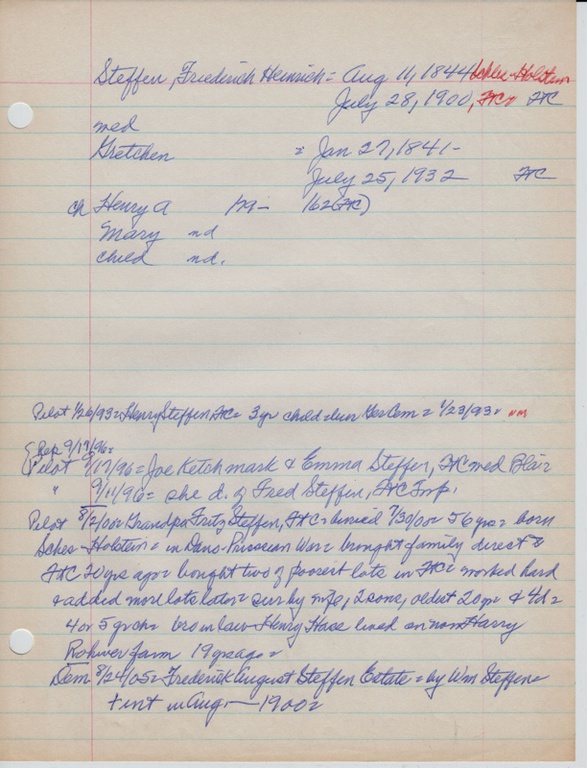 Steffen, Friederich Heinrich = Aug 11, 1844 Schles-Holstein
July 28, 1900, FtC FtC
med
Gretchen = Jan 27, 1841 -
July 25, 1932 FtC
ch Henry A 162 (FtC)
Mary nd
child nd.
Pilot 1/26/93 = Henry Steffen FtC = 3 yr child bur Ger Cem = 1/23/93 =
Rep 9/17/96 =
Pilot 9/17/96 = Joe Ketchmark & Emma Steffen, FtC med Blair
" 9/11/96 = she d. of Fred Steffen, FtC Imp.
Pilot 8/2/00 = Grandpa Fritz Steffen, FtC = buried 7/30/00 = 56 yrs = born
Sches-Holstein = in Dano-Prussian War = brought family direct to
FtC 20 yrs ago = bought two of poorest lots in FtC = worked hard
& added more lots later = sur by wife, 2 sons, oldest 20 yr & 4d =
4 or 5 grch = bro in law Henry Hass lived on now Harry
Rohwer farm 19 yrs ago =
Dem 8/24/05 = Frederick August Steffen Estate = by Wm Steffen =
+ int in Aug - 1900 =